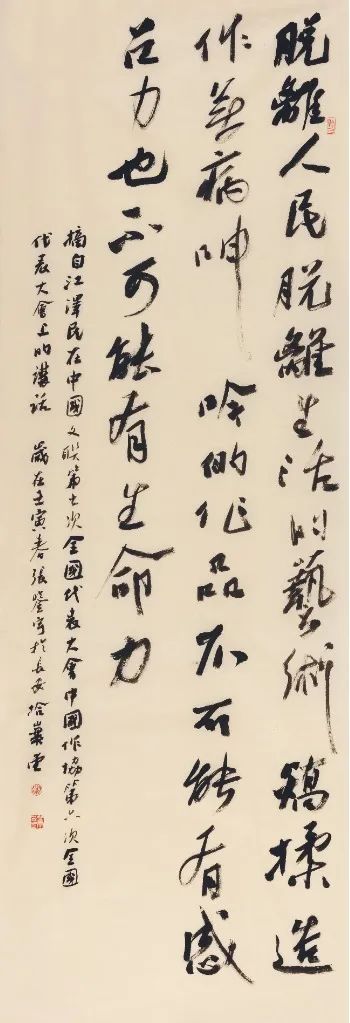 脱離人民脱離生活的藝術矯揉造
作無病呻吟的作品不可能有感
召力也不可能有生命力
摘自江澤民在中國文聯第七次全國代表大會中國作協第六次全國
代表大會上的講話 歲在壬寅春張瑩寫於長安